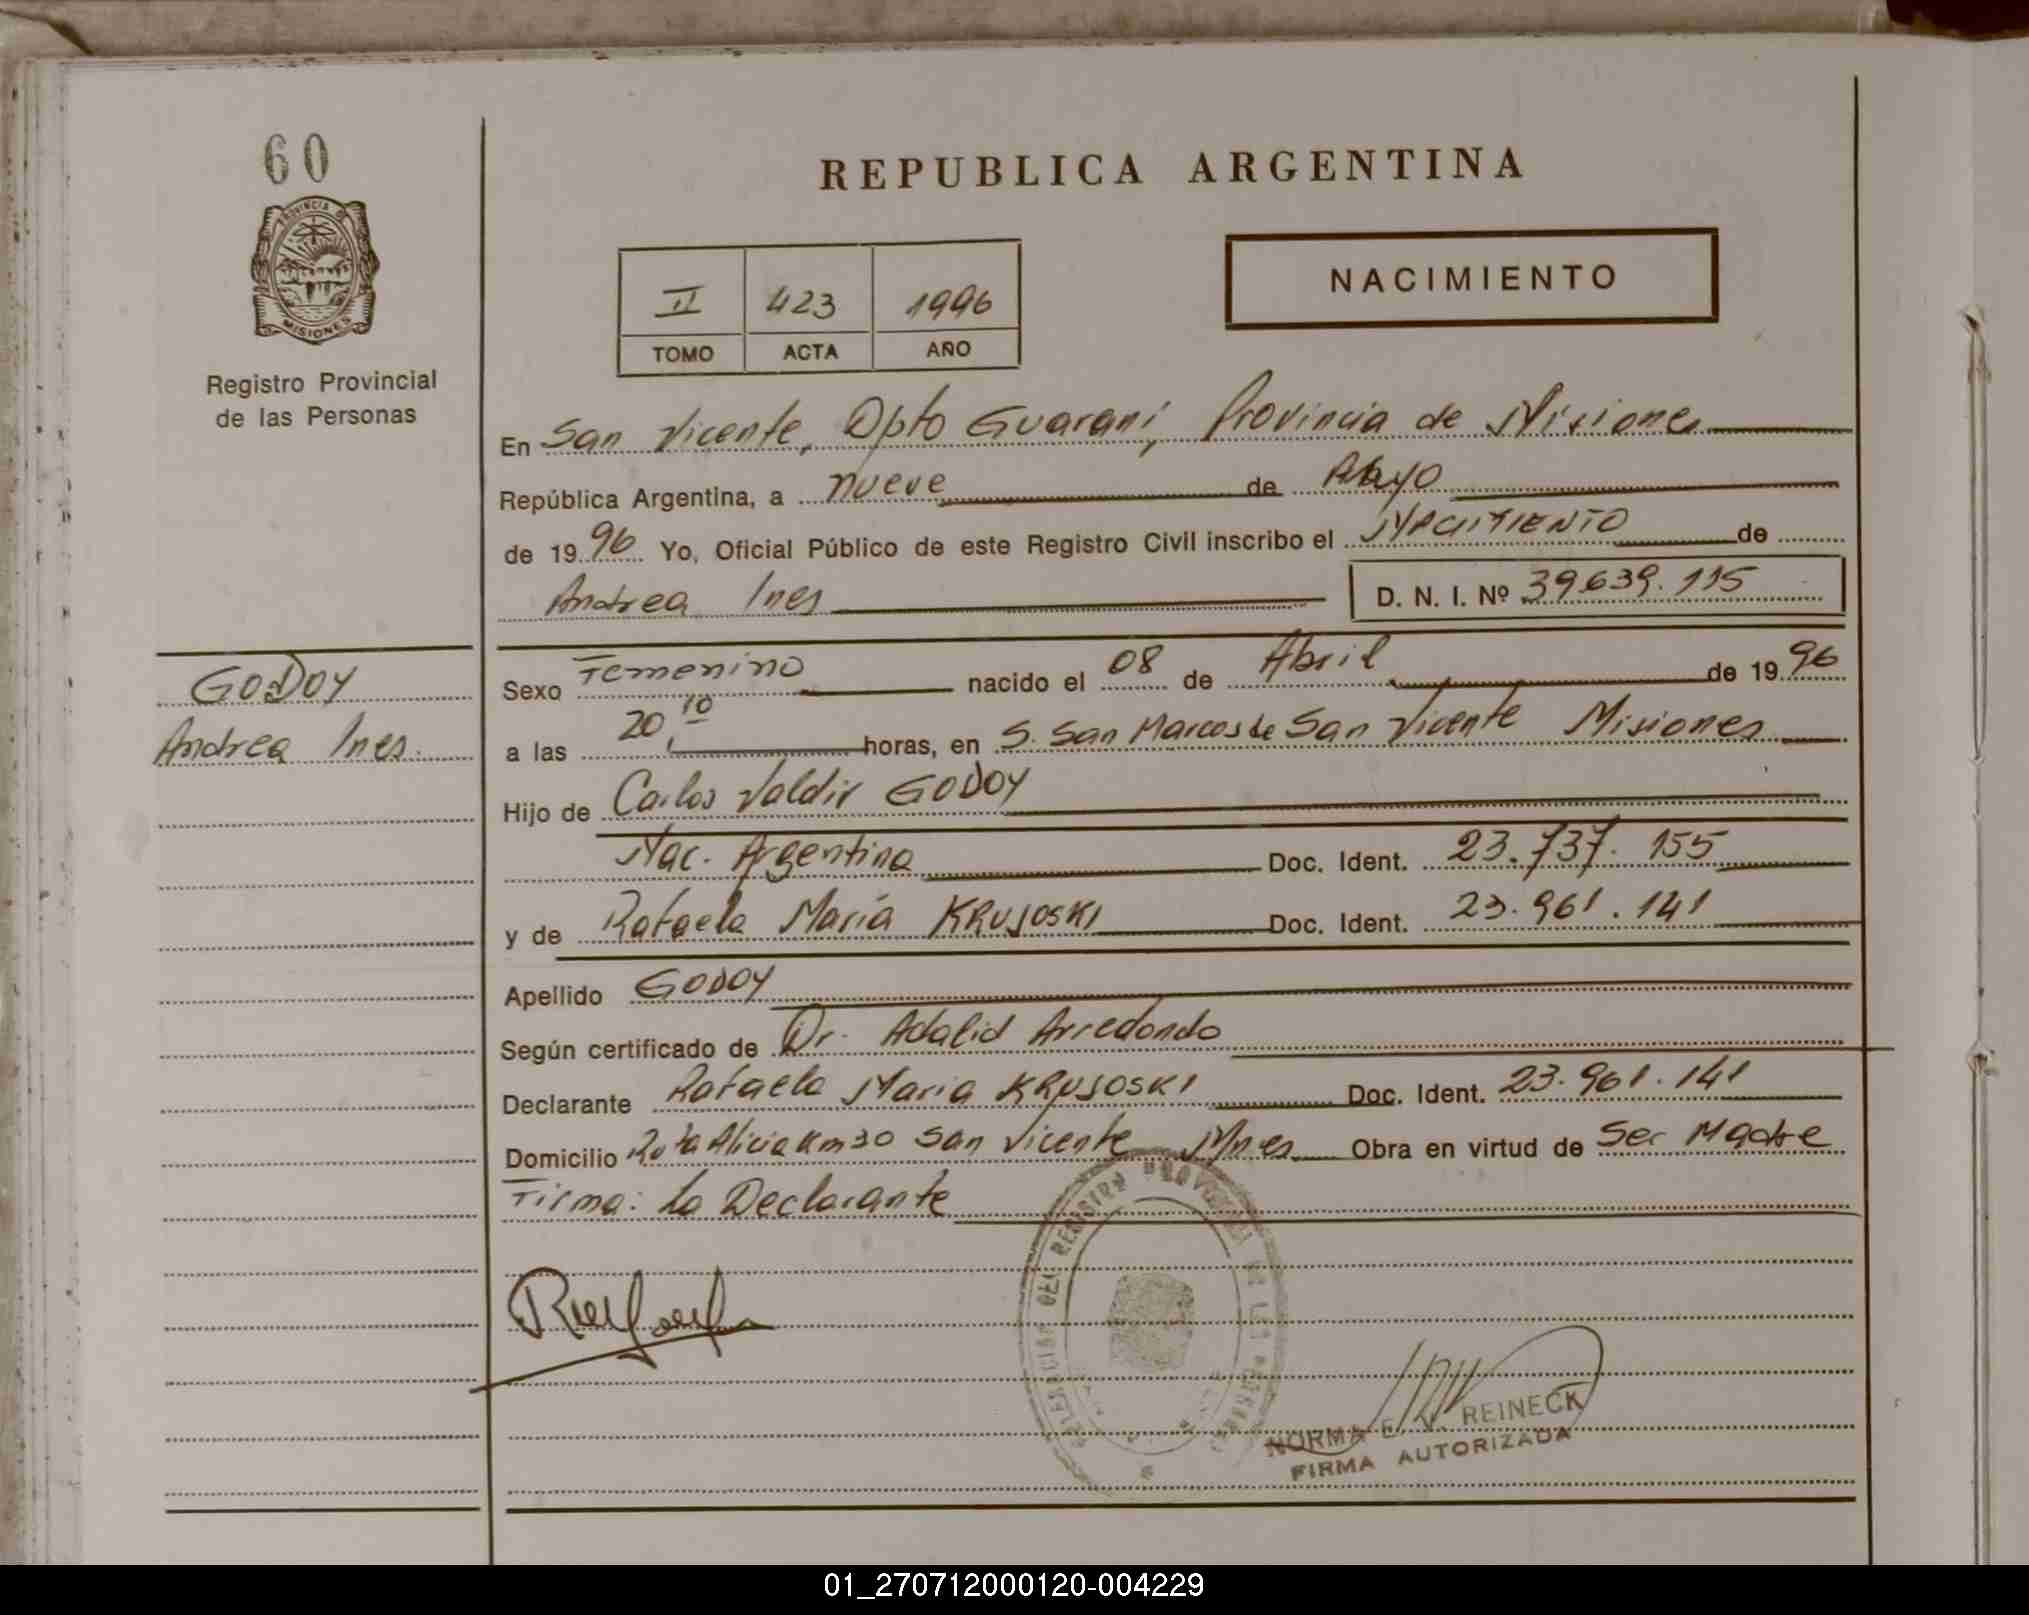 60
PROVINCIA DE
MISIONES
Registro Provincial
de las Personas
REPUBLICA ARGENTINA
II 423 1996
TOMO ACTA AÑO
NACIMIENTO
En San Vicente, Dpto Guaraní, Provincia de Misiones
República Argentina, a nueve de Mayo
de 1996 Yo, Oficial Público de este Registro Civil inscribo el NACIMIENTO de
Andrea Ines D. N. I. Nº 39.639.115
GODOY
Andrea Ines
Sexo Femenino nacido el 08 de Abril de 1996
a las 20,10 horas, en S. San Marcos de San Vicente Misiones
Hijo de Carlos Valdir GODOY
Nac. Argentina Doc. Ident. 23.737.155
y de Rafaela María KRUSOSKI Doc. Ident. 23.961.141
Apellido GODOY
Según certificado de Dr. Adalid Arredondo
Declarante Rafaela Maria KRUSOSKI Doc. Ident. 23.961.141
Domicilio Ruta Alicia Km 30 San Vicente Mnes Obra en virtud de Ser Madre
Firma: La Declarante
REGISTRO PROVINCIAL DE LAS PERSONAS
NORMA E. V. REINECK
FIRMA AUTORIZADA
01_270712000120-004229